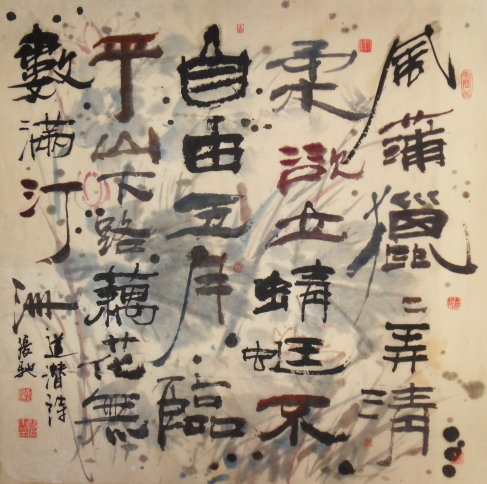 風蒲獵二弄清
柔欲立蜻蜓不
自由五月臨
平山下路藕花無
數滿汀洲
道潛詩
張馳